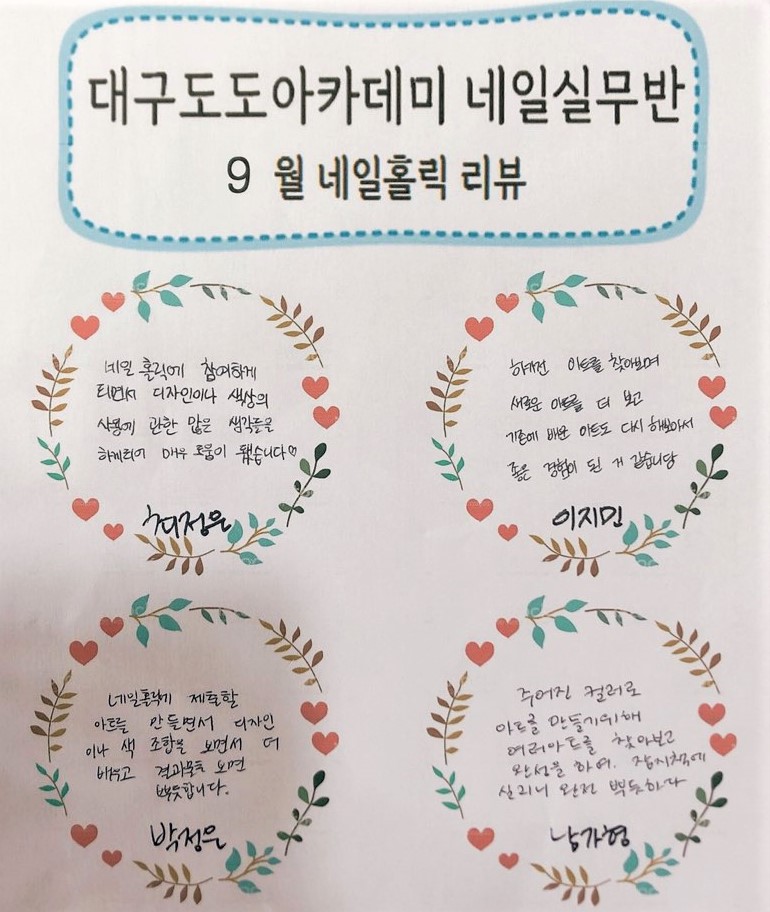 대구도도아카데미 네일실무반
9 월 네일홀릭 리뷰
네일 홀릭에 참여하게
되면서 디자인이나 색상의
사용에 관한 많은 생각들을
하게되어 매우 도움이 됐습니다♡
최정윤
하면서 아트를 찾아보며
새로운 아트를 더 보고
기존에 배운 아트도 다시 해보아서
좋은 경험이 된 거 같습니당
이지민
네일홀릭에 제출할
아트를 만들면서 디자인
이나 색 조합을 보면서 더
배우고 결과물도 보면
뿌듯합니다.
박정은
주어진 컬러로
아트를 만들기위해
여러아트를 찾아보고
완성을 하여. 잡지책에
실리니 완전 뿌듯하다
남가형